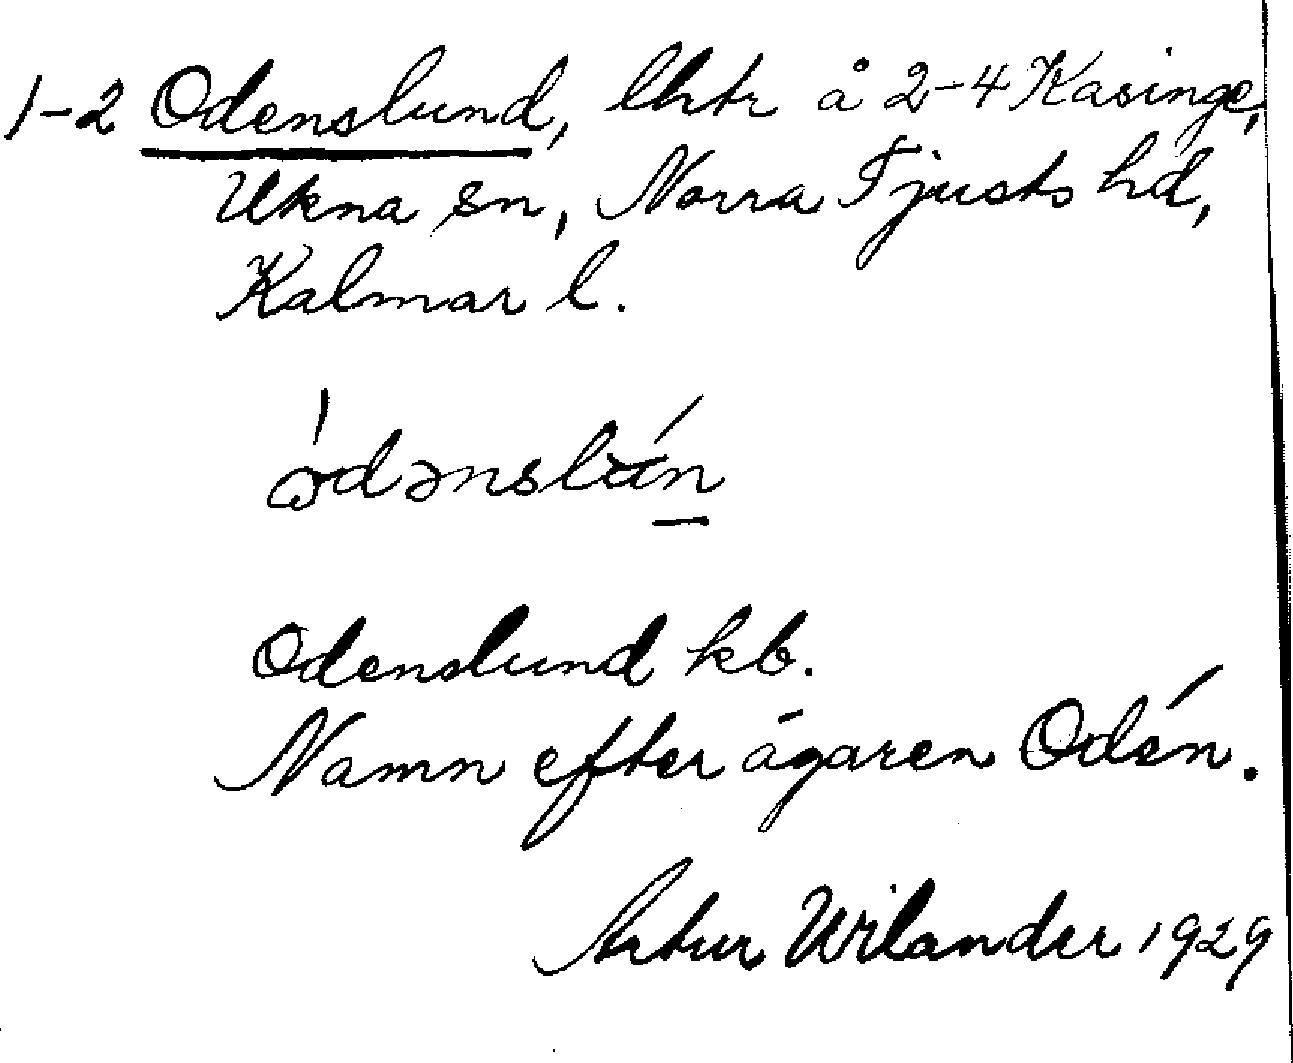 1-2 Odenslund, lhtr å 2-4 Kasinge,
Ukna sn, Norra Tjusts hd,
Kalmar l.
Odenslund kb.
Namn efter ägaren Odén.
Artur Wilander 1929